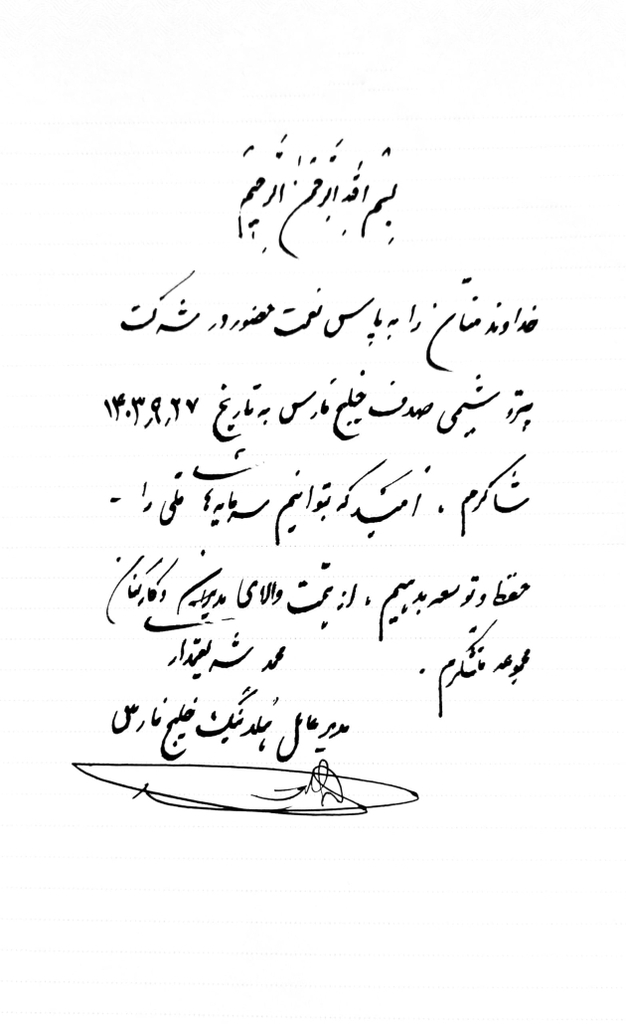 بسم الله الرحمن الرحیم
خداوند منّان را به پاس نعمت حضور در شرکت
پتروشیمی صدف خلیج فارس به تاریخ ۱۴۰۳،۹،۲۷
شاکرم . امید که بتوانیم سرمایه‌های ملّی را -
حفظ و توسعه بدهیم ، از همّت والای مدیران و کارکنان
مجموعه متشکّرم .
محمد شریعتمدار
مدیر عامل هلدینگ خلیج فارس